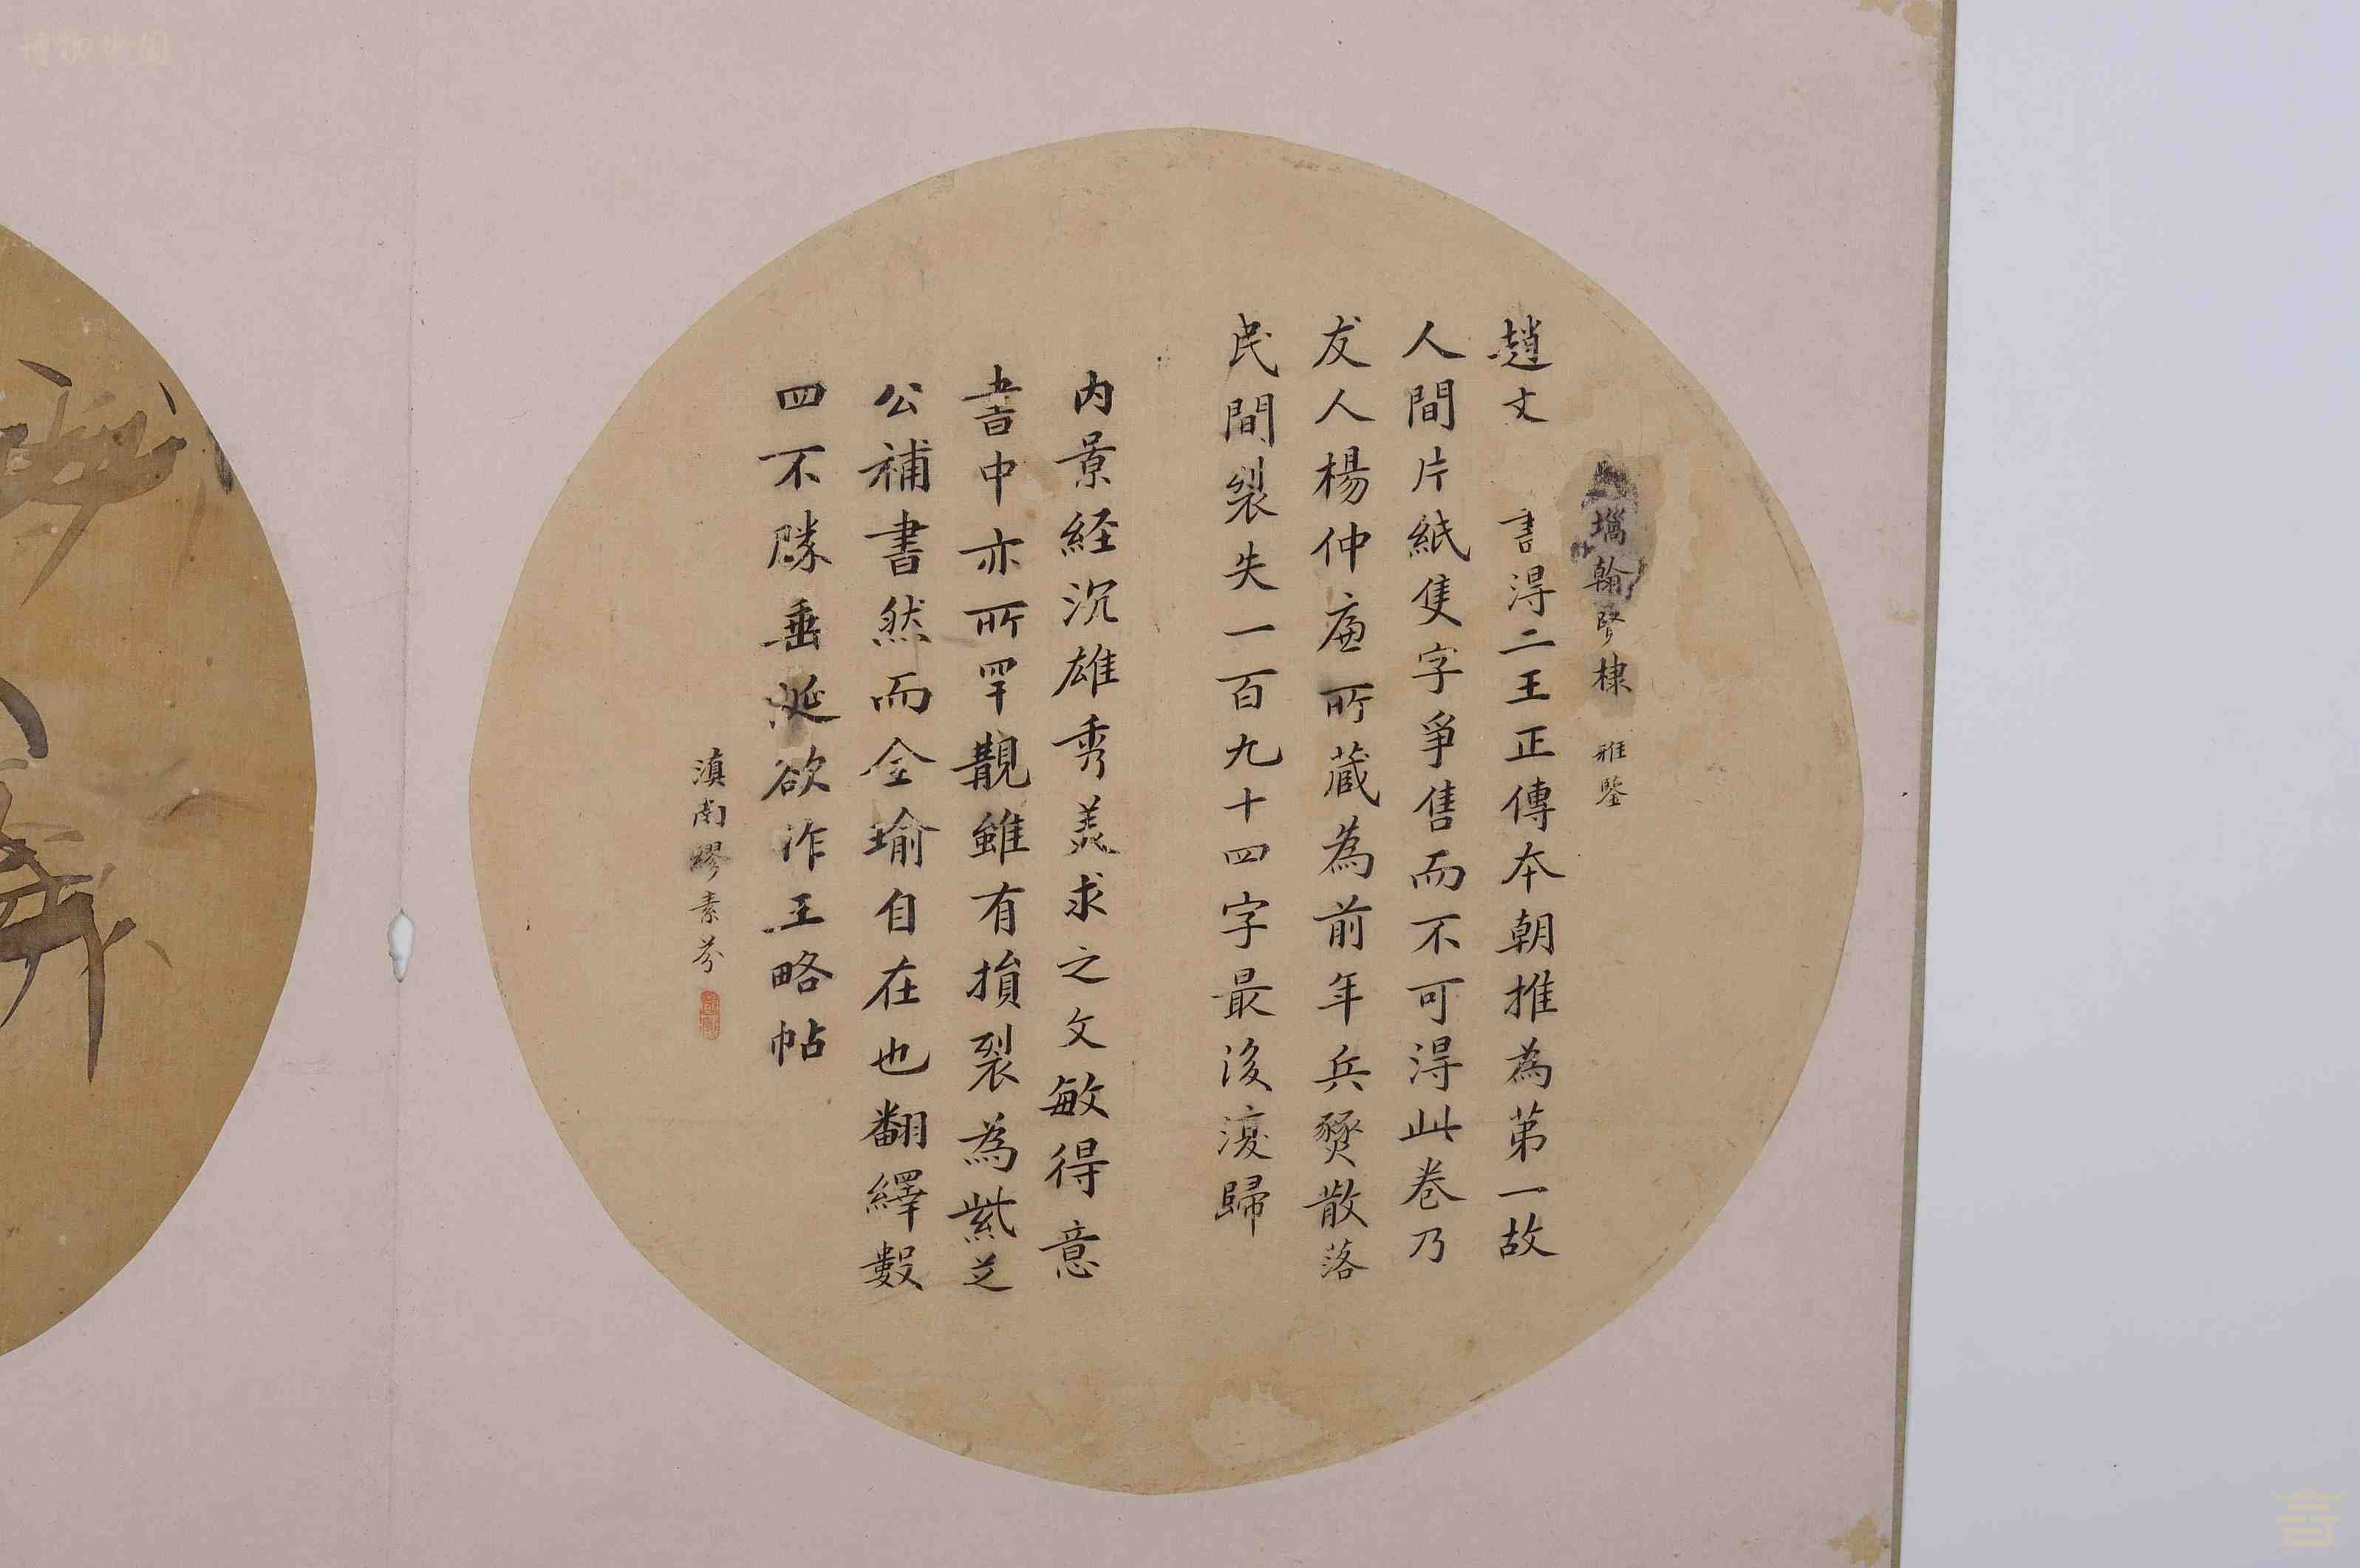 壖翰賢棣 雅鑒
趙文 書淂二王正傳本朝推為苐一故
人間片紙隻字爭售而不可淂此卷乃
友人楊仲庽所藏為前年兵燹散落
民間裂失一百九十四字最後澓歸
内景経沉雄秀羙求之文敏得意
書中亦所罕覯雖有損裂為紫芝
公補書然而金瑜自在也翻繹數
四不勝垂涎欲作王略帖
滇南繆素芬
博物中国